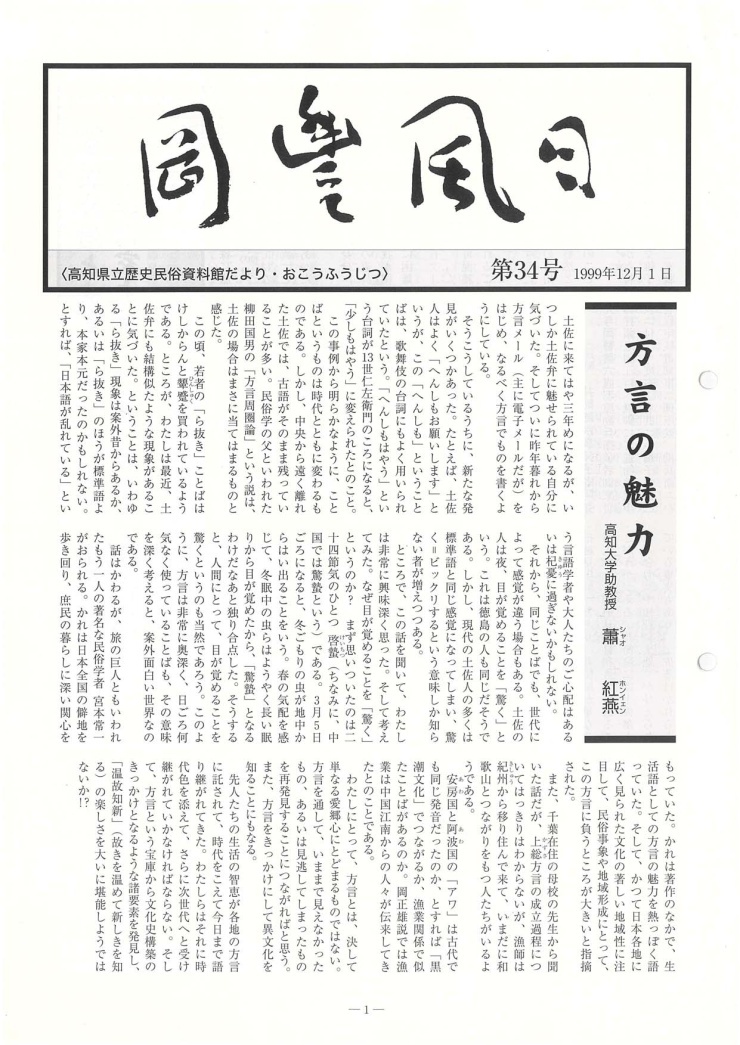 岡豐風日
〈高知県立歴史民俗資料館だより・おこうふうじつ〉
第34号 1999年12月1日
方言の魅力
高知大学助教授 蕭 紅燕
シャオ ホンイェン
土佐に来てはや三年めになるが、い
つしか土佐弁に魅せられている自分に
気づいた。そしてついに昨年暮れから
方言メール（主に電子メールだが）を
はじめ、なるべく方言でものを書くよ
うにしている。
そうこうしているうちに、新たな発
見がいくつかあった。たとえば、土佐
人はよく「へんしもお願いします」と
いうが、この「へんしも」というこ
ばは、歌舞伎の台詞にもよく用いられ
ていたという。「へんしもはやう」とい
う台詞が13世仁左衛門のころになると、
「少しもはやう」に変えられたとのこと。
この事例から明らかなように、こと
ばというものは時代とともに変わるも
のである。しかし、中央から遠く離れ
た土佐では、古語がそのまま残ってい
ることが多い。民俗学の父といわれた
柳田国男の「方言周圏論」という説は、
土佐の場合はまさに当てはまるものと
感じた。
この頃、若者の「ら抜き」ことばは
けしからんと顰蹙を買われているよう
である。ところが、わたしは最近、土
佐弁にも結構似たような現象があるこ
とに気づいた。ということは、いわゆ
る「ら抜き」現象は案外昔からあるか、
あるいは「ら抜き」のほうが標準語よ
り、本家本元だったのかもしれない。
とすれば、「日本語が乱れている」とい
う言語学者や大人たちのご心配はある
いは杞憂に過ぎないかもしれない。
それから、同じことばでも、世代に
よって感覚が違う場合もある。土佐の
人は夜、目が覚めることを「驚く」と
いう。これは徳島の人も同じだそうで
ある。しかし、現代の土佐人の多くは
標準語と同じ感覚になってしまい、驚
く＝ビックリするという意味しか知ら
ない者が増えつつある。
ところで、この話を聞いて、わたし
は非常に興味深く思った。そして考え
てみた。なぜ目が覚めることを「驚く」
というのか？ まず思いついたのは二
十四節気のひとつ 啓蟄（ちなみに、中
国では驚蟄という）である。3月5日
ごろになると、冬ごもりの虫が地中か
らはい出ることをいう。春の気配を感
じて、冬眠中の虫らはようやく長い眠
りから目が覚めたから、「驚蟄」となる
わけだなあと独り合点した。そうする
と、人間にとって、目が覚めることを
驚くというのも当然であろう。このよ
うに、方言は非常に奥深く、日ごろ何
気なく使っていることばも、その意味
を深く考えると、案外面白い世界なの
である。
話はかわるが、旅の巨人ともいわれ
たもう一人の著名な民俗学者 宮本常一
がおられる。かれは日本全国の僻地を
歩き回り、庶民の暮らしに深い関心を
もっていた。かれは著作のなかで、生
活語としての方言の魅力を熱っぽく語
っていた。そして、かつて日本各地に
広く見られた文化の著しい地域性に注
目して、民俗事象や地域形成にとって、
この方言に負うところが大きいと指摘
された。
また、千葉在住の母校の先生から聞
いた話だが、上総方言の成立過程につ
いてはっきりはわからないが、漁師は
紀州から移り住んで来て、いまだに和
歌山とつながりをもつ人たちがいるよ
うである。
安房国と阿波国の「アワ」は古代で
も同じ発音だったのか、とすれば「黒
潮文化」でつながるか、漁業関係で似
たことばがあるのか。岡正雄説では漁
業は中国江南からの人々が伝来してき
たとのことである。
わたしにとって、方言とは、決して
単なる愛郷心にとどまるものではない。
方言を通して、いままで見えなかった
もの、あるいは見逃してしまったもの
を再発見することにつながればと思う。
また、方言をきっかけにして異文化を
知ることにもなる。
先人たちの生活の智恵が各地の方言
に託されて、時代をこえて今日まで語
り継がれてきた。わたしらはそれに時
代色を添えて、さらに次世代へと受け
継がれていかなければならない。そし
て、方言という宝庫から文化史構築の
きっかけとなるような諸要素を発見し、
「温故知新」（故きを温めて新しきを知
る）の楽しさを大いに堪能しようでは
ないか!?
―1―